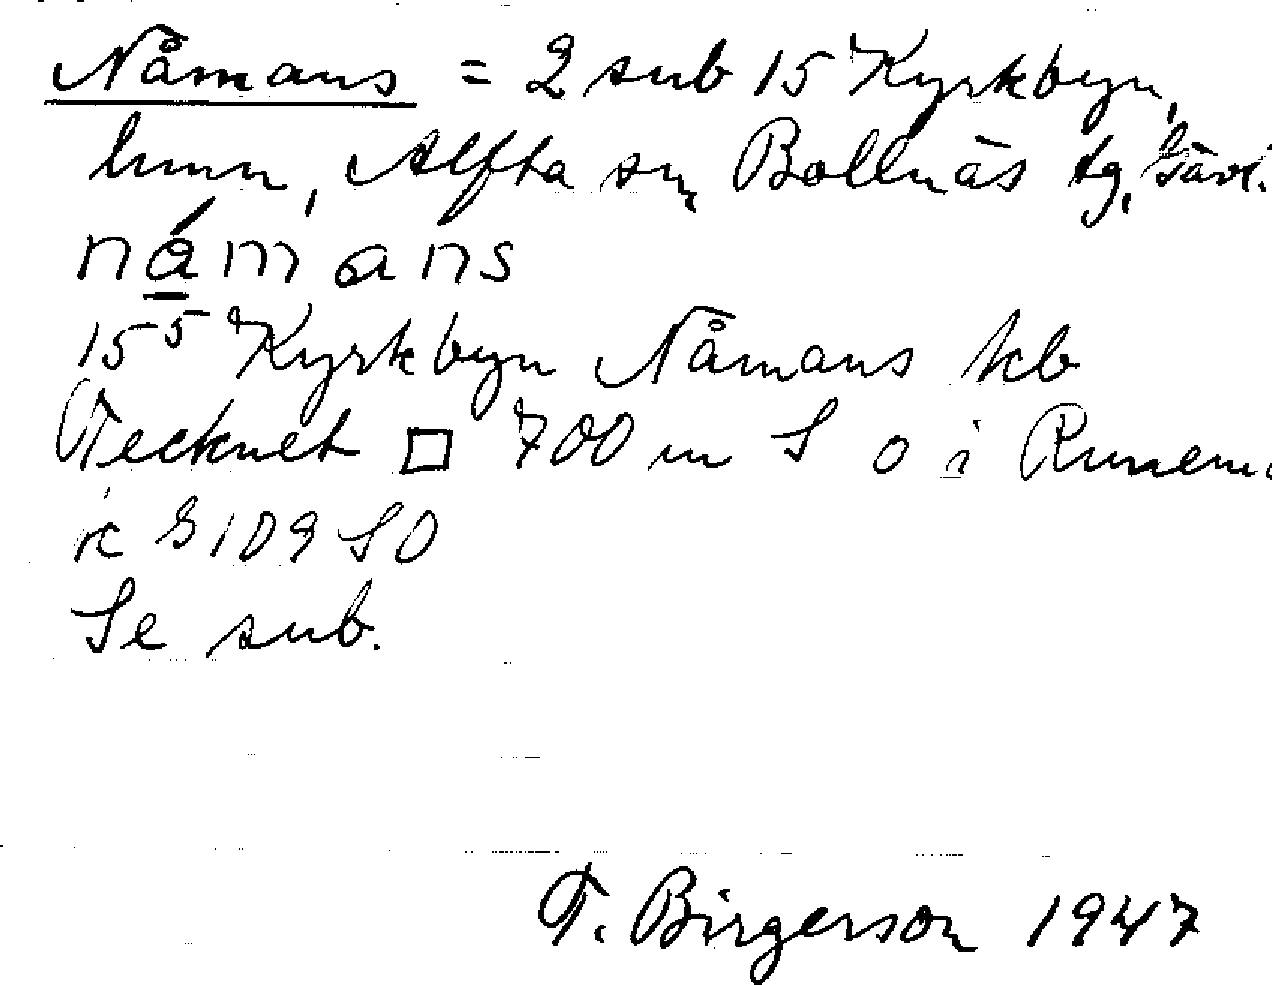 Nåmans = 2 sub 15 Kyrkbyn,
hmn, Alfta sn, Bollnäs tg, Gävl.
nåmans
15⁵ Kyrkbyn Nåmans kb
Tecknet □ 700 m S o i Runem
rc G 109 SO
Se sub.
T. Birgerson 1947